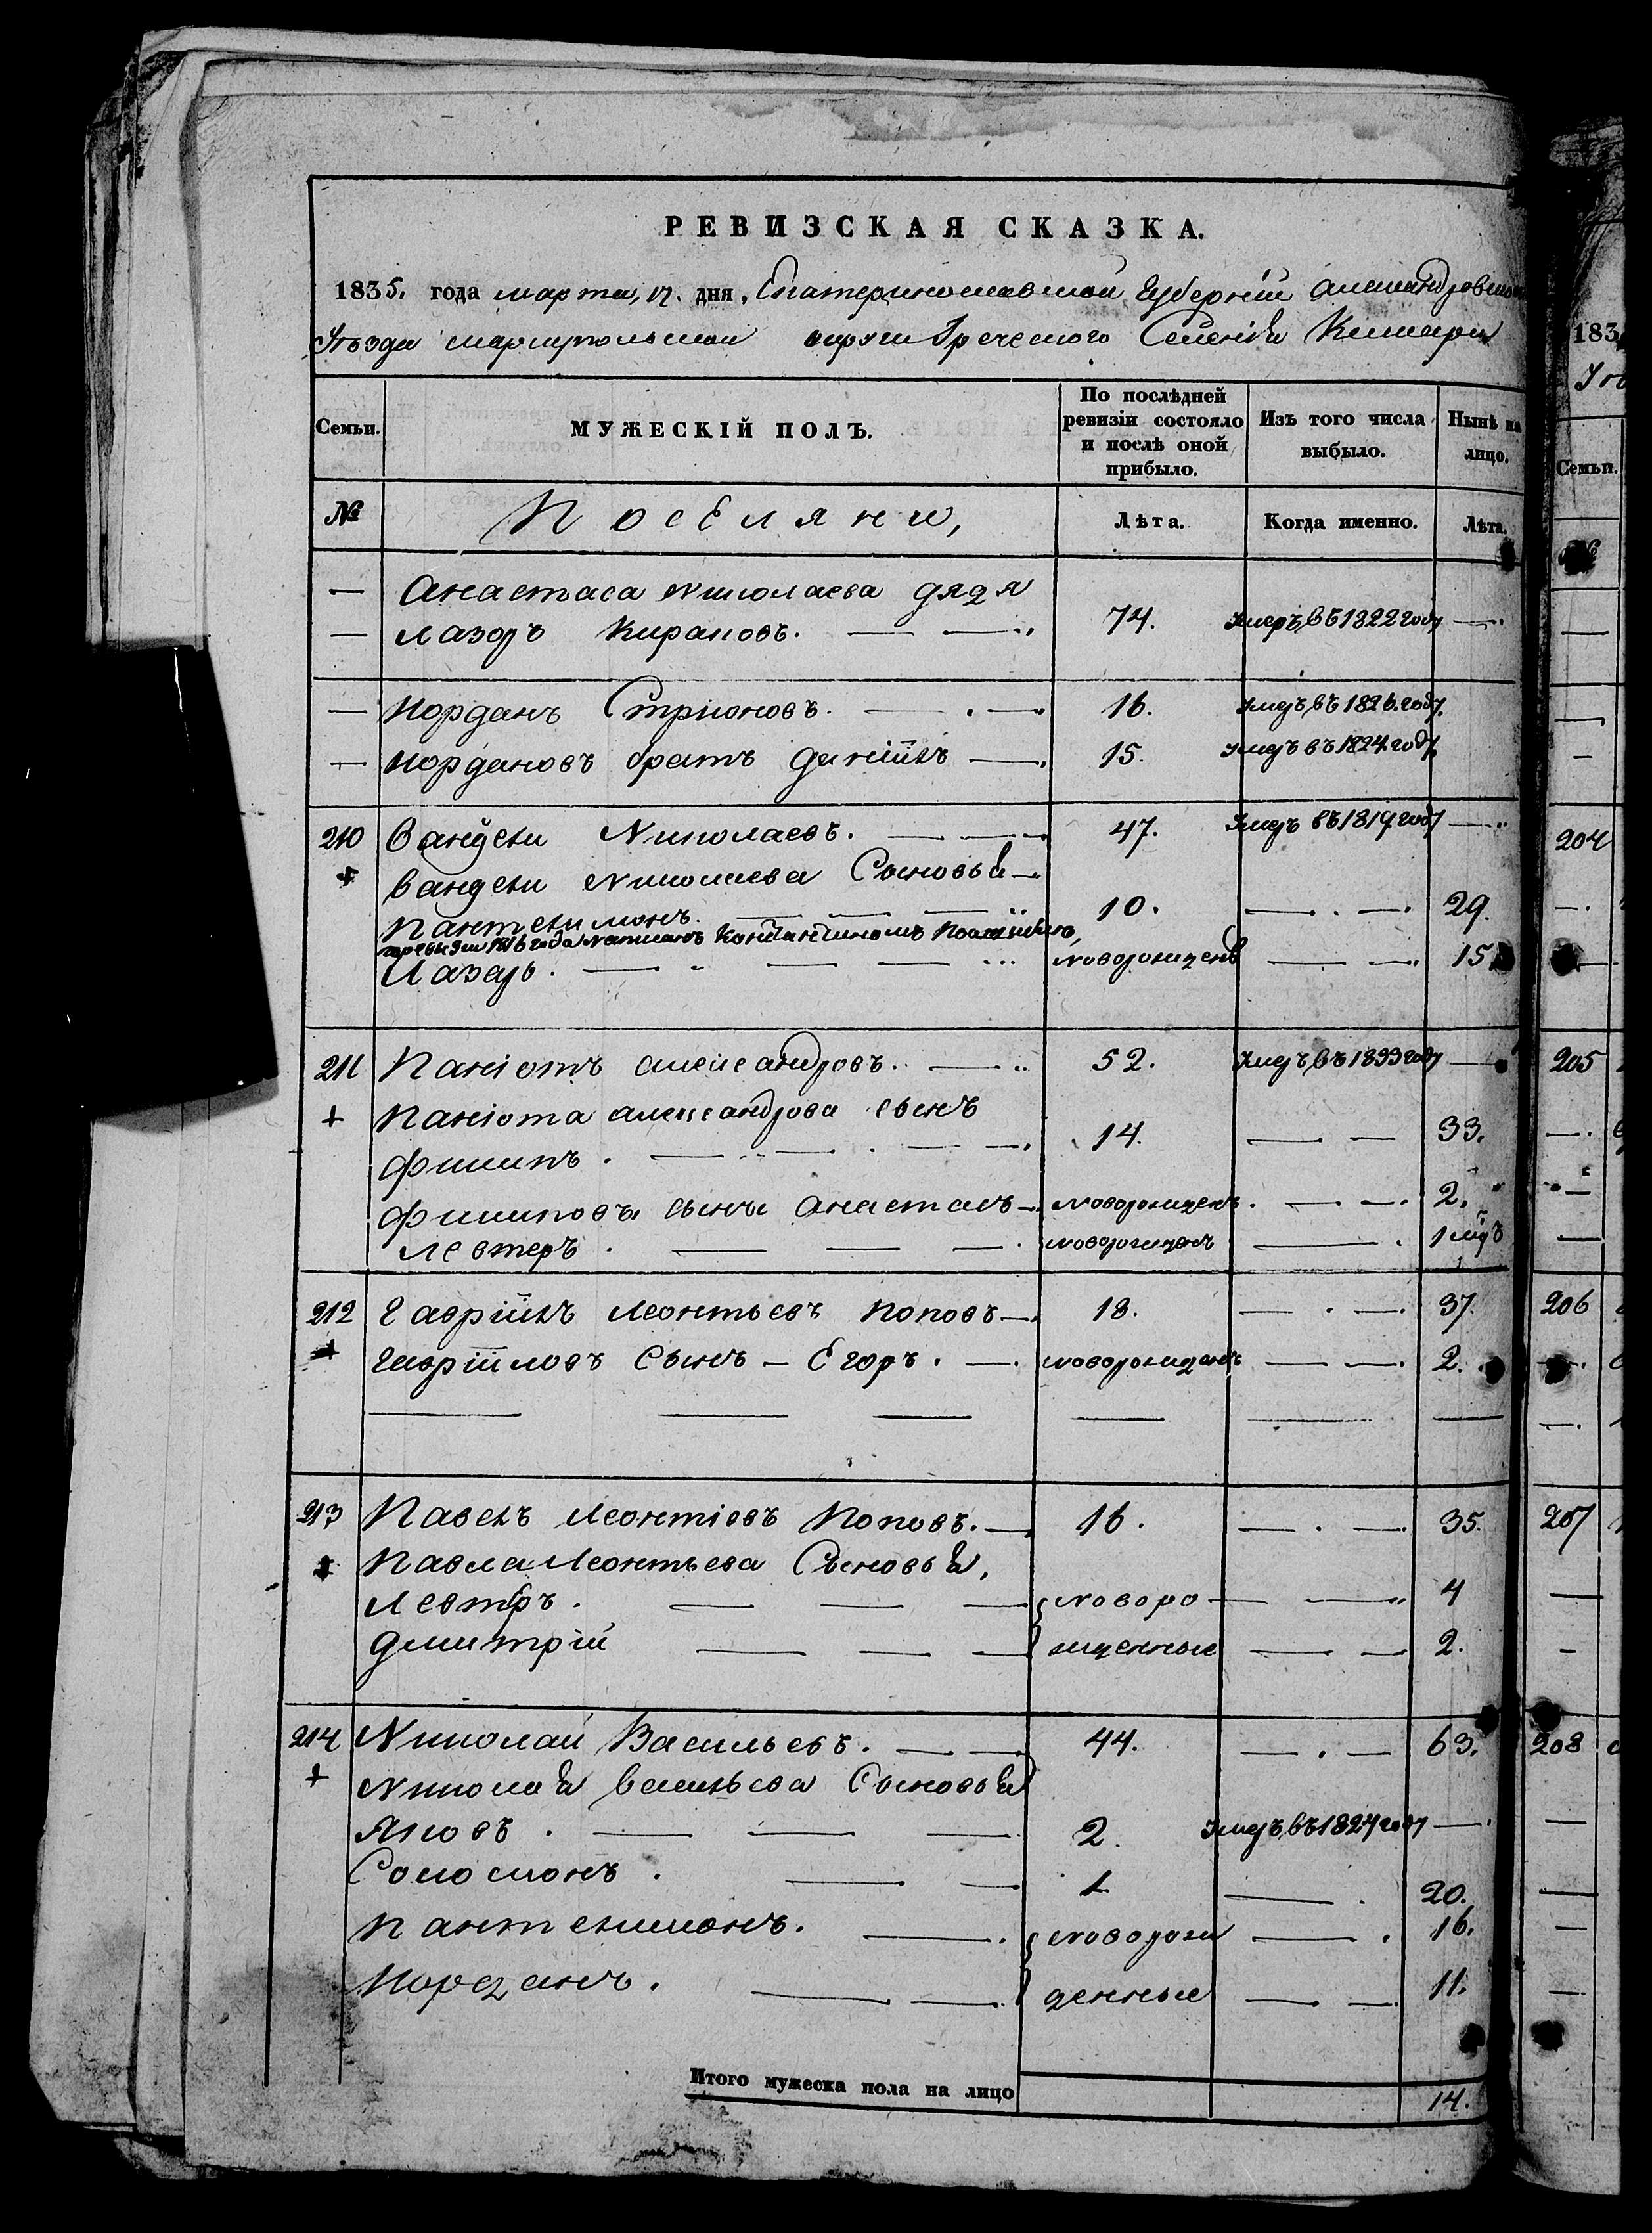 РЕВИЗСКАЯ СКАЗКА.
1835. года марта, 17. дня, Екатеринославской Губерніи Александровско
Уѣзда мариупольскои округи Греческого Селенія
183
У
Семьи. МУЖЕСКІЙ ПОЛЪ. По послѣдней ревизіи состояло и послѣ оной прибыло. Изъ того числа выбыло. Нынѣ на лицо.
Семьи.
№ Поселяни, Лѣта. Когда именно. Лѣта.
— Анастаса Николаева дядя
— Лазоръ Кираковъ. 74. Умеръ въ 1822 году —
— Иорданъ Стріоновъ. 16. Умеръ въ 1826. году.
— Иордановъ братъ Даніилъ 15. Умеръ въ 1824. году
210 Вангели Николаевъ. 47. Умеръ въ 1819 году —
+ Вангели Николаева Сыновья
Пантелимонъ 10. — 29.
ревизии 1816 года написанъ Константиномъ
Лазарь. новорожденъ — 15
211 Паніотъ Александровъ. 52. Умеръ въ 1833 году —
+ Паніота Александрова сынъ
Филипъ. 14. — 33.
Филиповы сыны Анастасъ новорожденъ. — 2.
Левтеръ. новорожденъ — 1 мцъ
212 Гавріилъ Леонтьевъ Поповъ 18. — 37.
+ Гавріиловъ Сынъ — Егоръ. новорожденъ — 2.
213 Павелъ Леонтіевъ Поповъ. 16. — 35.
+ Павла Леонтьева Сыновья,
Левтеръ. новоро — 4
Дмитрій жденные — 2.
214 Николай Васильевъ. 44. — 63.
+ Николая Васильева Сыновья
Яковъ. 2. Умеръ въ 1827 году —
Соломонъ. 1 — 20.
Пантелимонъ. новорож — 16.
Иорданъ. денные — 11.
Итого мужеска пола на лицо 14.
204
205
206
207
208